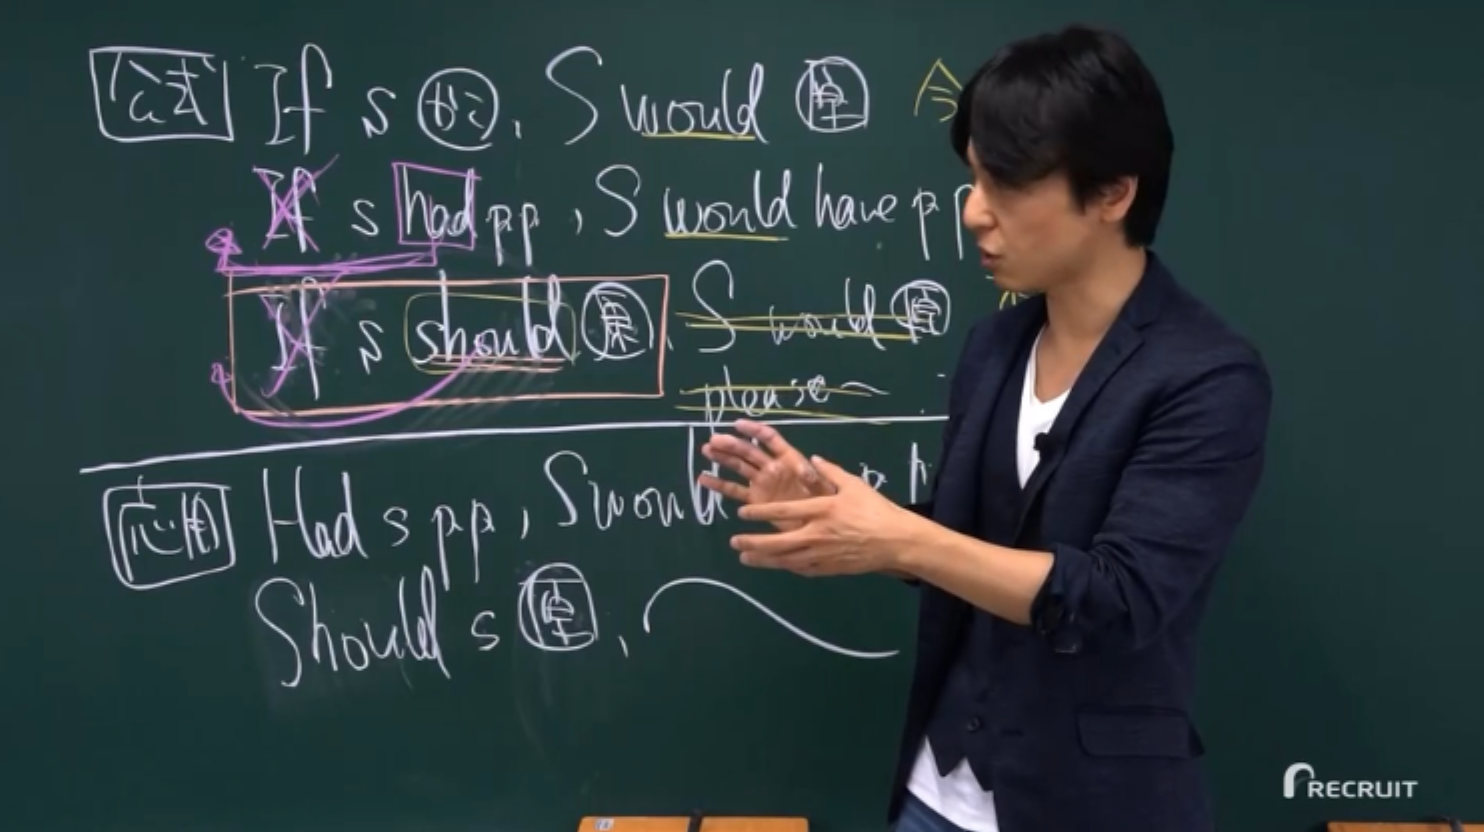 公式 If s かこ, S would 原
If s had pp, S would have pp
If s should 原, S would 原
please~
応用 Had s pp, S would
Should s 原,
RECRUIT